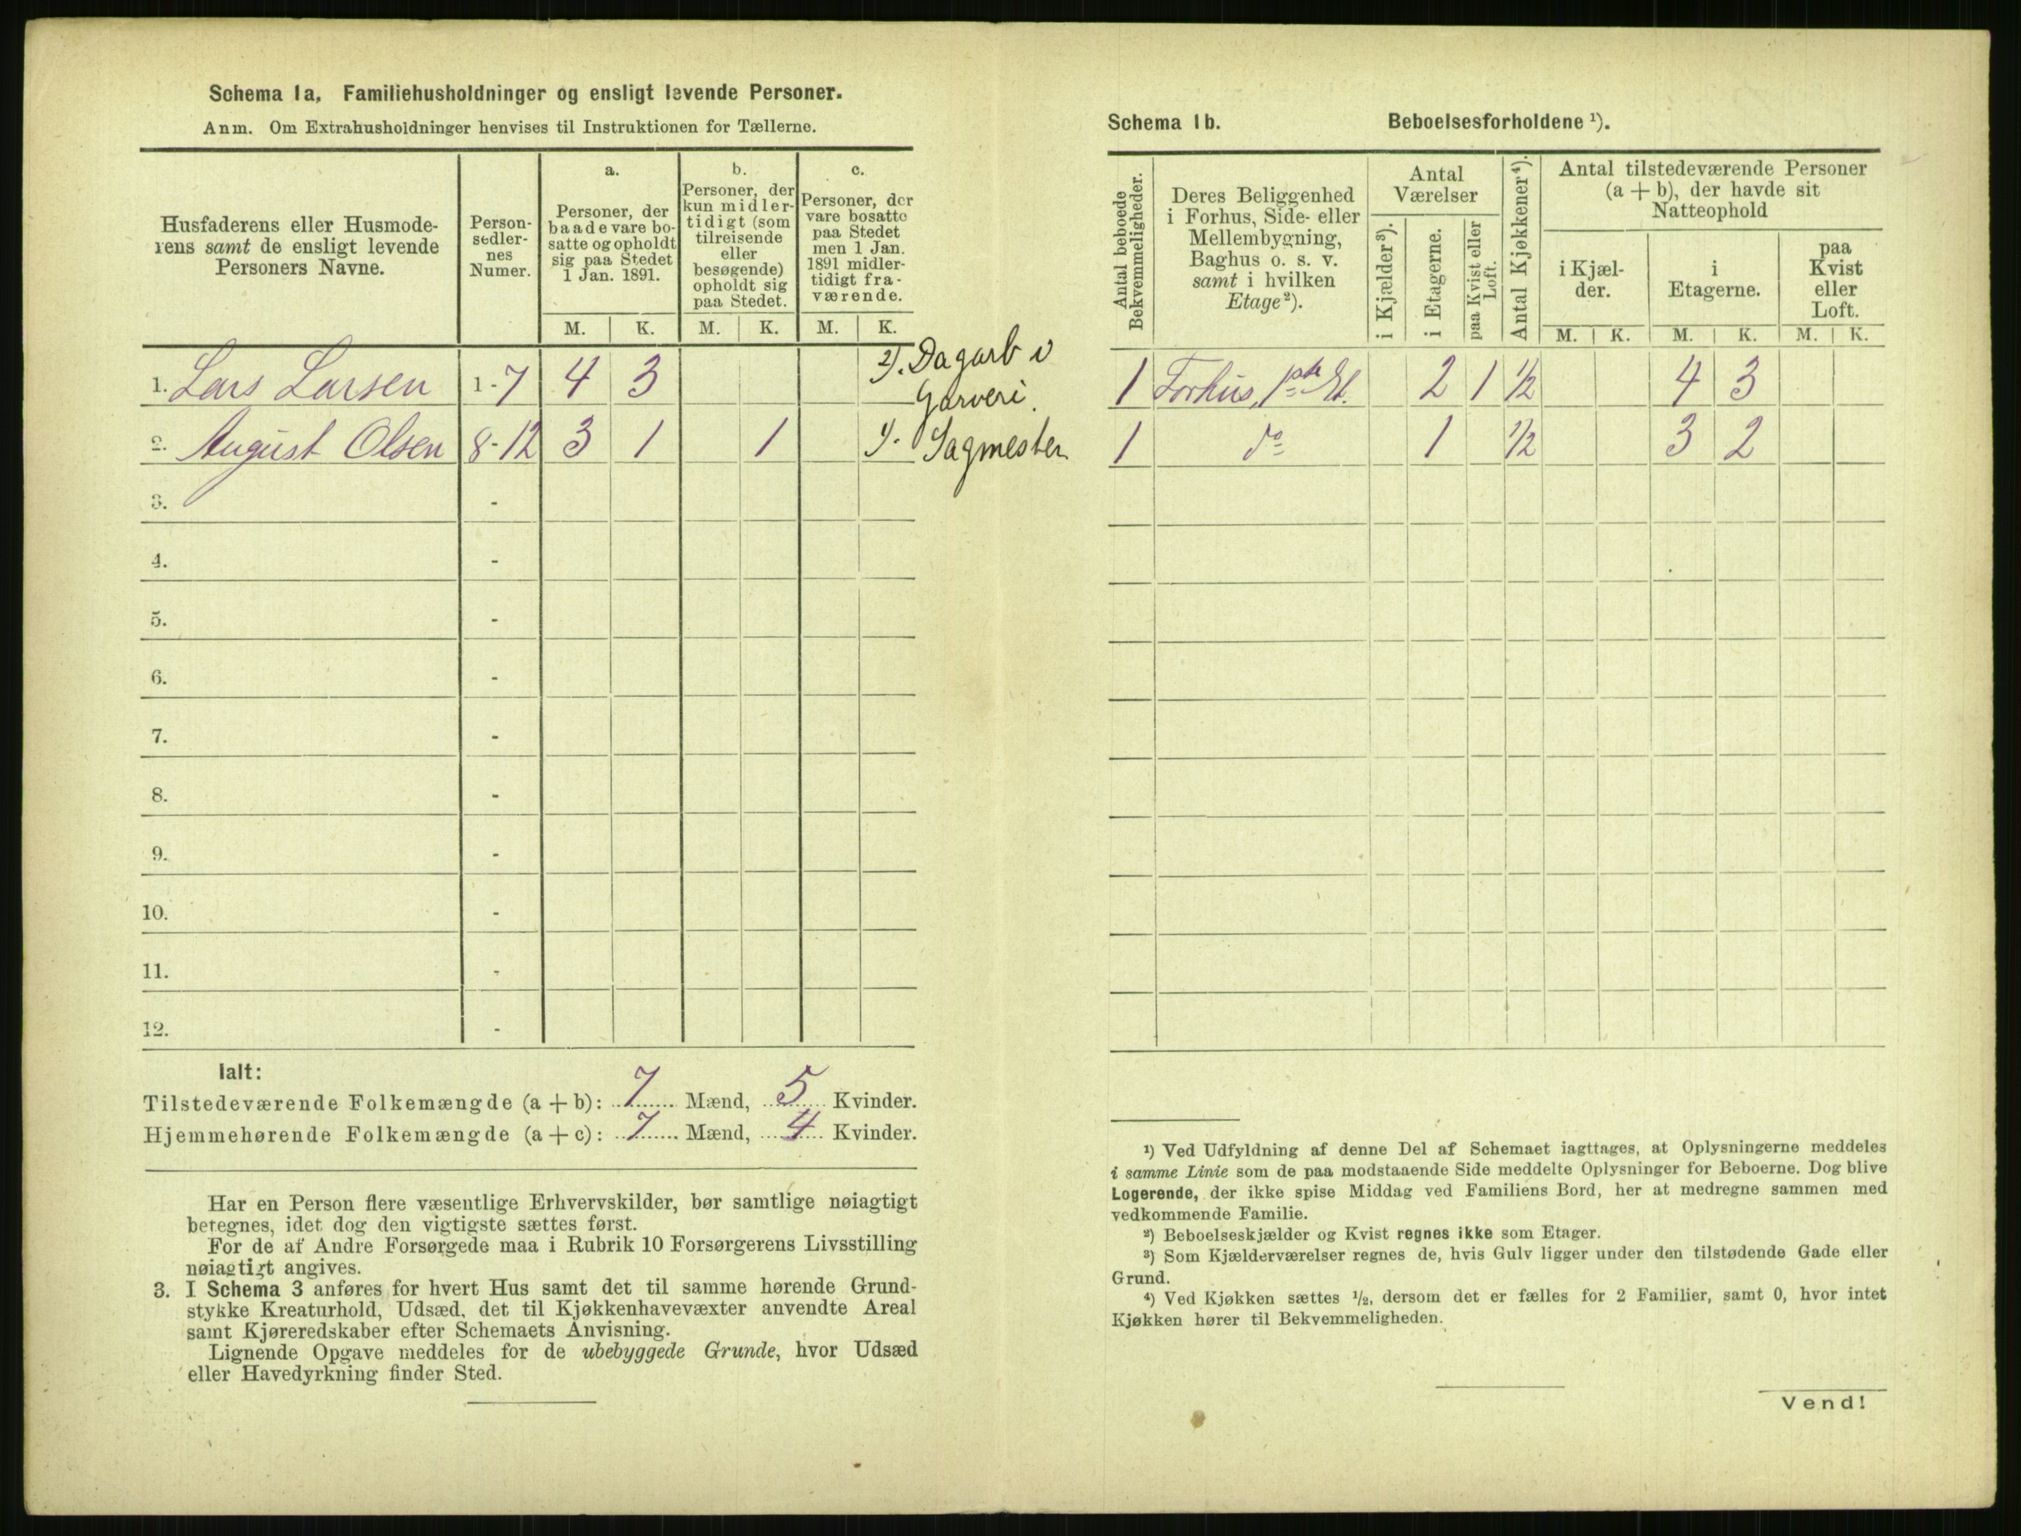 Schema 1a. Familiehusholdninger og ensligt levende Personer.
Anm. Om Extrahusholdninger henvises til Instruktionen for Tællerne.
Husfaderens eller Husmode-
rens samt de ensligt levende
Personers Navne.
Person-
sedler-
nes
Numer.
a.
Personer, der
baade vare bo-
satte og opholdt
sig paa Stedet
1 Jan. 1891.
b.
Personer, der
kun midler-
tidigt (som
tilreisende
eller
besøgende)
opholdt sig
paa Stedet.
c.
Personer, der
vare bosatte
paa Stedet
men 1 Jan.
1891 midler-
tidigt fra-
værende.
M. K. M. K. M. K.
1. Lars Larsen 1-7 4 3 2). Dagarb i
Garveri.
2. August Olsen 8-12 3 1 1 1). Sagmester
3. -
4. -
5. -
6. -
7. -
8. -
9. -
10. -
11. -
12. -
Ialt:
Tilstedeværende Folkemængde (a + b): 7 Mænd, 5 Kvinder.
Hjemmehørende Folkemængde (a + c): 7 Mænd, 4 Kvinder.
Har en Person flere væsentlige Erhvervskilder, bør samtlige nøiagtigt
betegnes, idet dog den vigtigste sættes først.
For de af Andre Forsørgede maa i Rubrik 10 Forsørgerens Livsstilling
nøiagtigt angives.
3. I Schema 3 anføres for hvert Hus samt det til samme hørende Grund-
stykke Kreaturhold, Udsæd, det til Kjøkkenhavevæxter anvendte Areal
samt Kjøreredskaber efter Schemaets Anvisning.
Lignende Opgave meddeles for de ubebyggede Grunde, hvor Udsæd
eller Havedyrkning finder Sted.
Schema 1b. Beboelsesforholdene ¹).
Antal beboede
Bekvemmeligheder.
Deres Beliggenhed
i Forhus, Side- eller
Mellembygning,
Baghus o. s. v.
samt i hvilken
Etage ²).
Antal
Værelser
i Kjælder ³).
i Etagerne.
paa Kvist eller
Loft.
Antal Kjøkkener ⁴).
Antal tilstedeværende Personer
(a + b), der havde sit
Natteophold
i Kjæl-
der.
i
Etagerne.
paa
Kvist
eller
Loft.
M. K. M. K. M. K.
1 Forhus, 1ste Et. 2 1 ½ 4 3
1 do 1 ½ 3 2
¹) Ved Udfyldning af denne Del af Schemaet iagttages, at Oplysningerne meddeles
i samme Linie som de paa modstaaende Side meddelte Oplysninger for Beboerne. Dog blive
Logerende, der ikke spise Middag ved Familiens Bord, her at medregne sammen med
vedkommende Familie.
²) Beboelseskjælder og Kvist regnes ikke som Etager.
³) Som Kjælderværelser regnes de, hvis Gulv ligger under den tilstødende Gade eller
Grund.
⁴) Ved Kjøkken sættes ½, dersom det er fælles for 2 Familier, samt 0, hvor intet
Kjøkken hører til Bekvemmeligheden.
Vend!